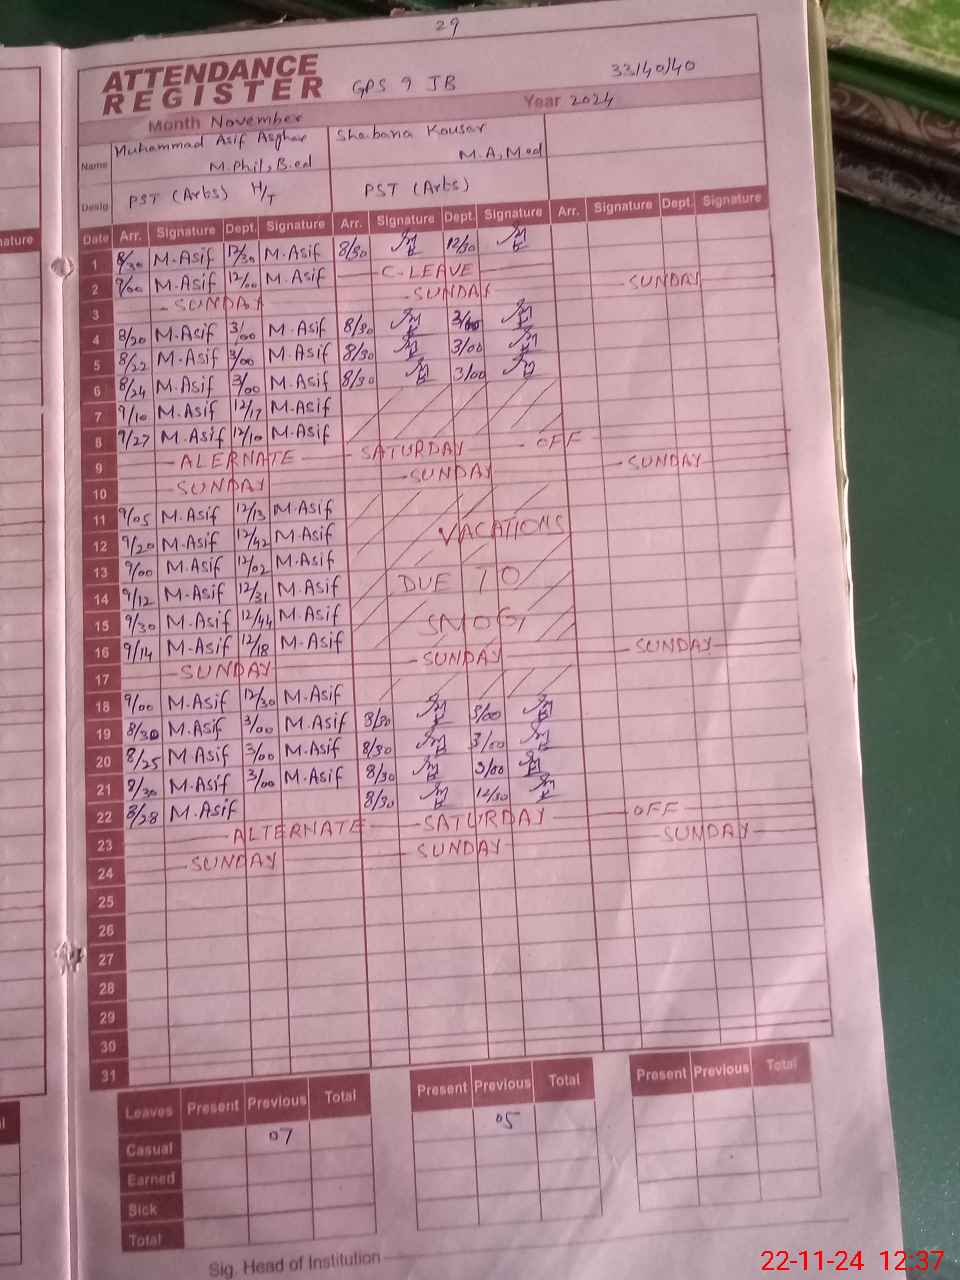 29
ATTENDANCE
REGISTER GPS 9 JB 33/40/40
Month November Year 2024
Name Muhammad Asif Asghar Shabana Kousar
M.Phil, B.ed M.A, M.ed
Desig PST (Arbs) H/T PST (Arbs)
Date Arr. Signature Dept. Signature Arr. Signature Dept. Signature Arr. Signature Dept. Signature
1 8/30 M-Asif 12/30 M-Asif 8/30 12/30
2 9/00 M-Asif 12/00 M-Asif C-LEAVE
3 SUNDAY SUNDAY SUNDAY
4 8/20 M-Asif 3/00 M-Asif 8/30 3/00
5 8/22 M-Asif 3/00 M-Asif 8/30 3/00
6 8/24 M-Asif 3/00 M-Asif 8/30 3/00
7 9/10 M-Asif 12/17 M-Asif
8 9/27 M-Asif 12/10 M-Asif
9 ALERNATE SATURDAY OFF
10 SUNDAY SUNDAY SUNDAY
11 9/05 M-Asif 12/13 M-Asif
12 9/20 M-Asif 12/42 M-Asif VACATIONS
13 9/00 M-Asif 12/02 M-Asif
14 9/12 M-Asif 12/31 M-Asif DUE TO
15 9/30 M-Asif 12/44 M-Asif SMOG
16 9/14 M-Asif 12/18 M-Asif
17 SUNDAY SUNDAY SUNDAY
18 9/00 M-Asif 12/30 M-Asif
19 8/30 M-Asif 3/00 M-Asif 8/30 3/00
20 8/25 M-Asif 3/00 M-Asif 8/30 3/00
21 8/30 M-Asif 3/00 M-Asif 8/30 3/00
22 8/28 M-Asif 8/30 12/30
23 ALTERNATE SATURDAY OFF
24 SUNDAY SUNDAY SUNDAY
25
26
27
28
29
30
31
Leaves Present Previous Total Present Previous Total Present Previous Total
Casual 07 05
Earned
Sick
Total
Sig. Head of Institution
22-11-24 12:37